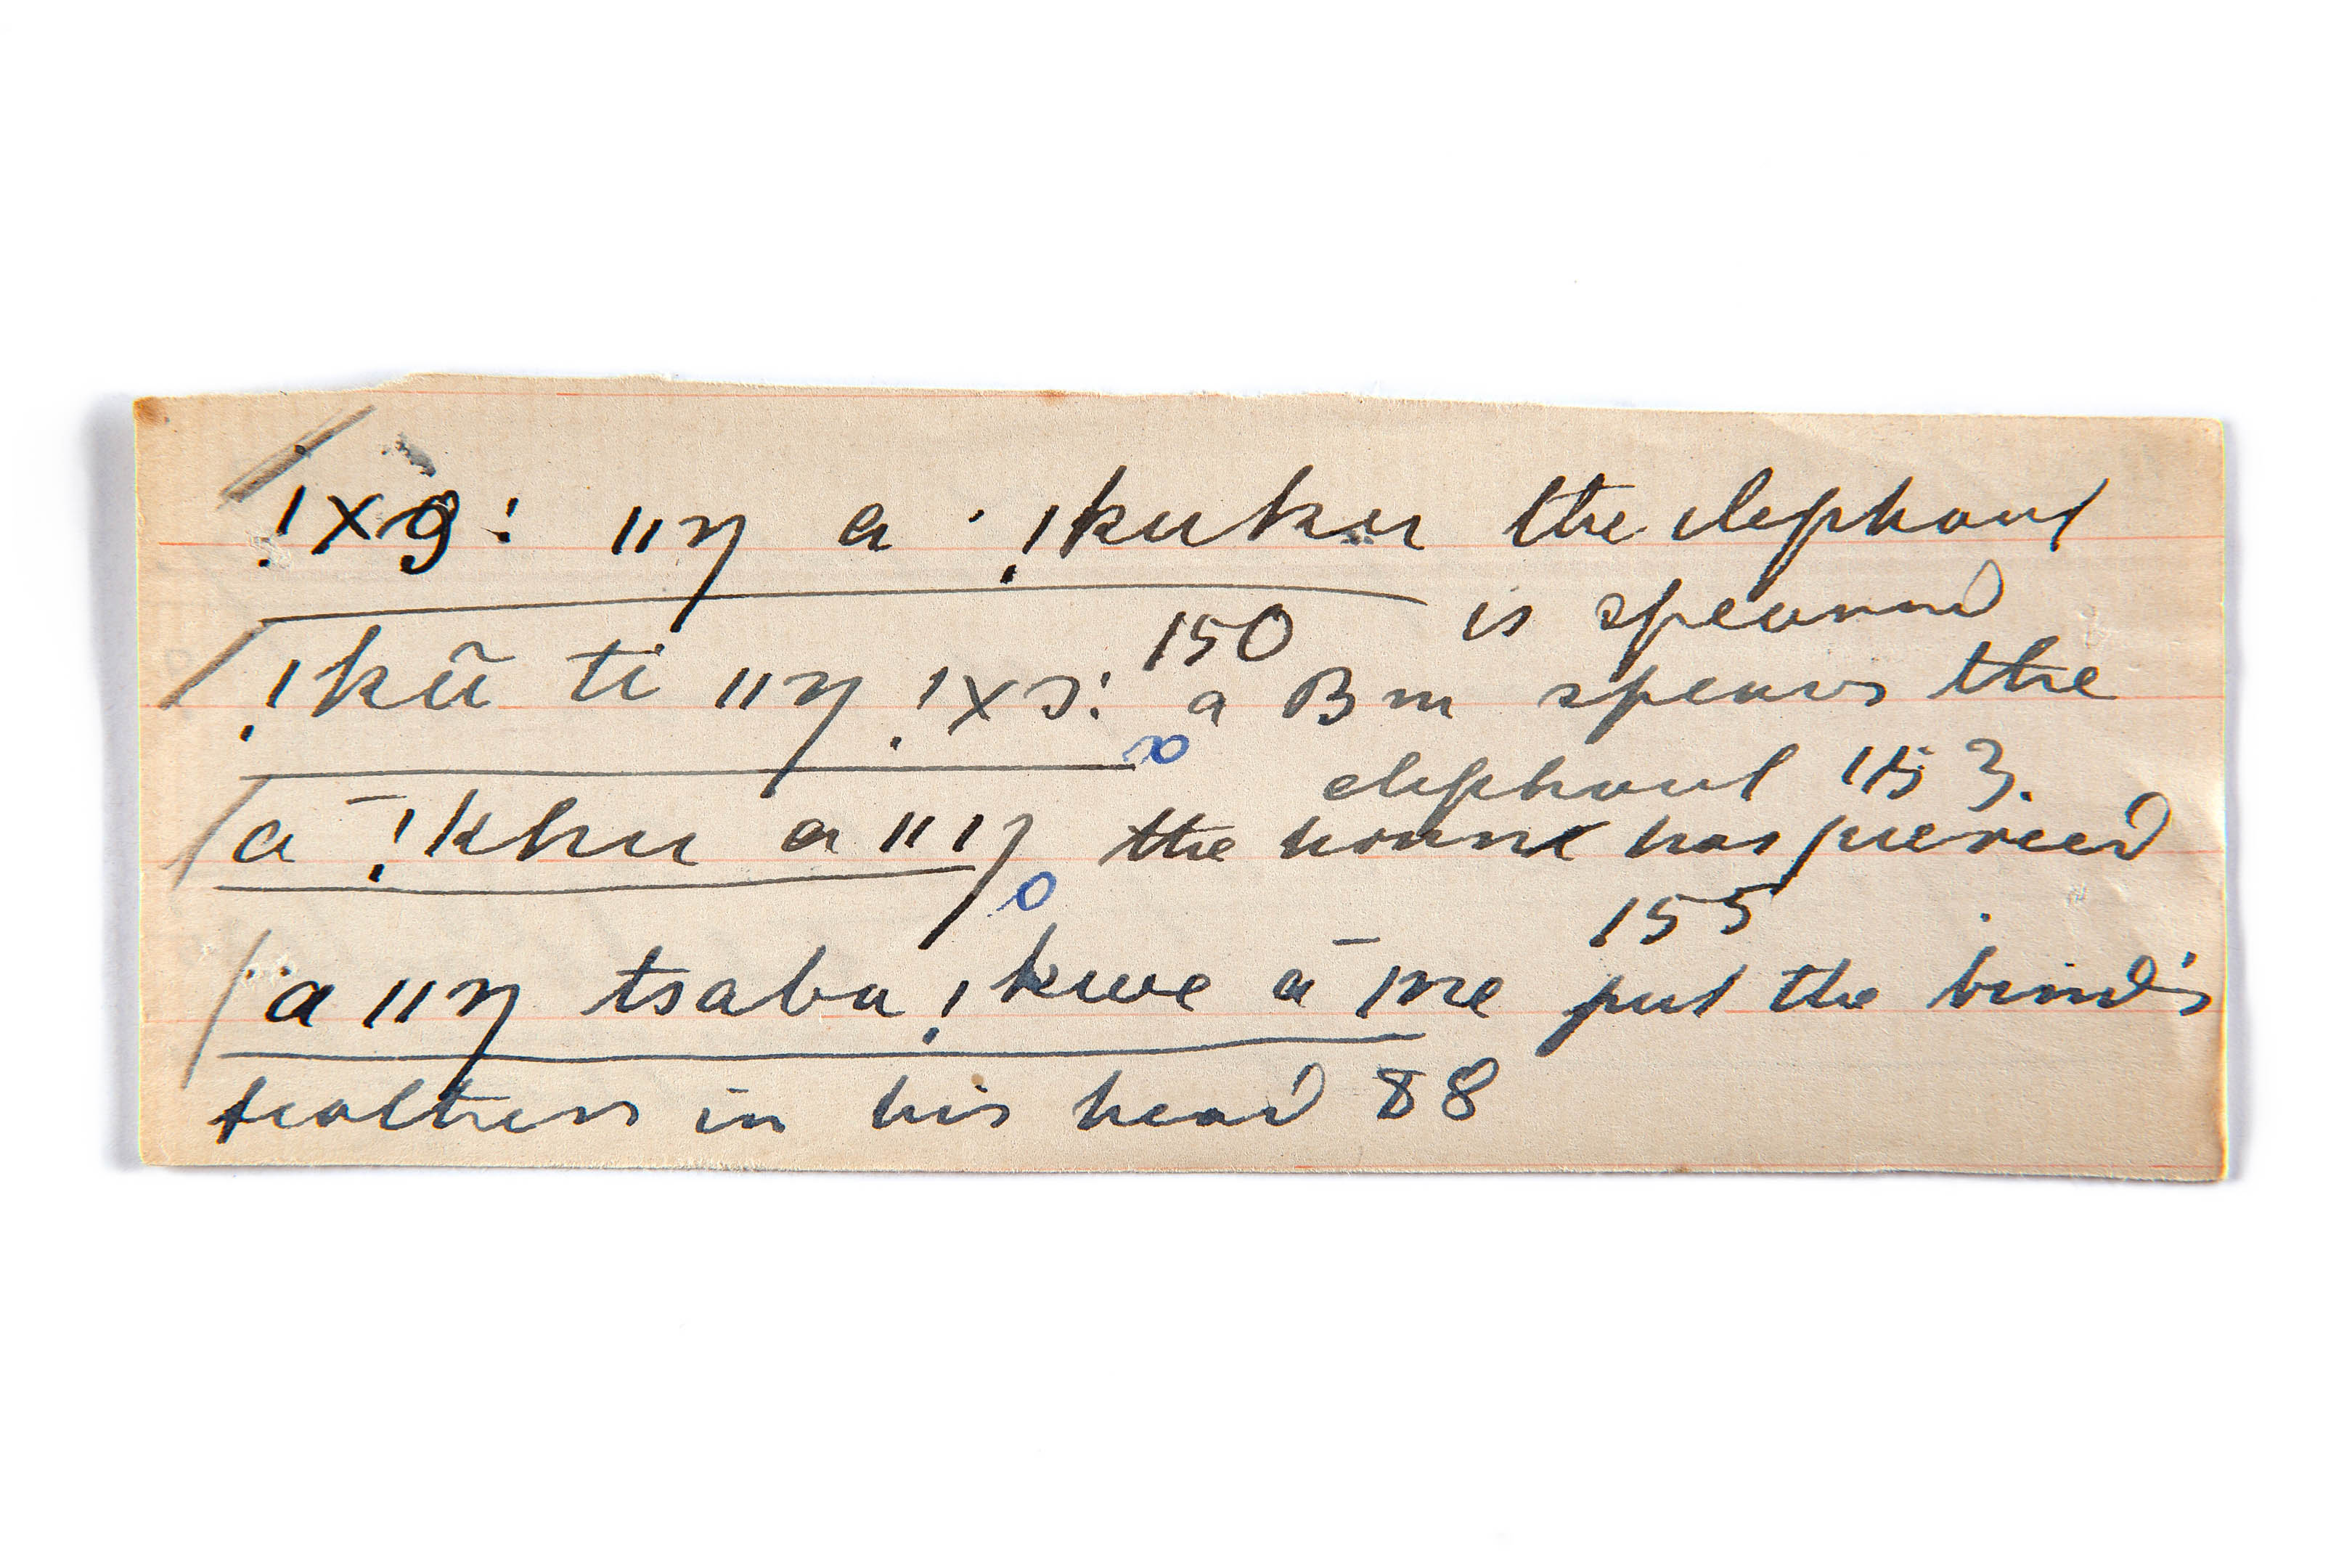 !xɔ: ǁŋ a ˙ !kuku the elephant
is speared
150
!kũ ti ǁŋ !xɔ: a Bm spears the
elephant 153.
ā !khu a ǁŋ the has pierced
155
a ǁŋ tsaba !kwe ā ǀne put the bird's
feathers in his head 88